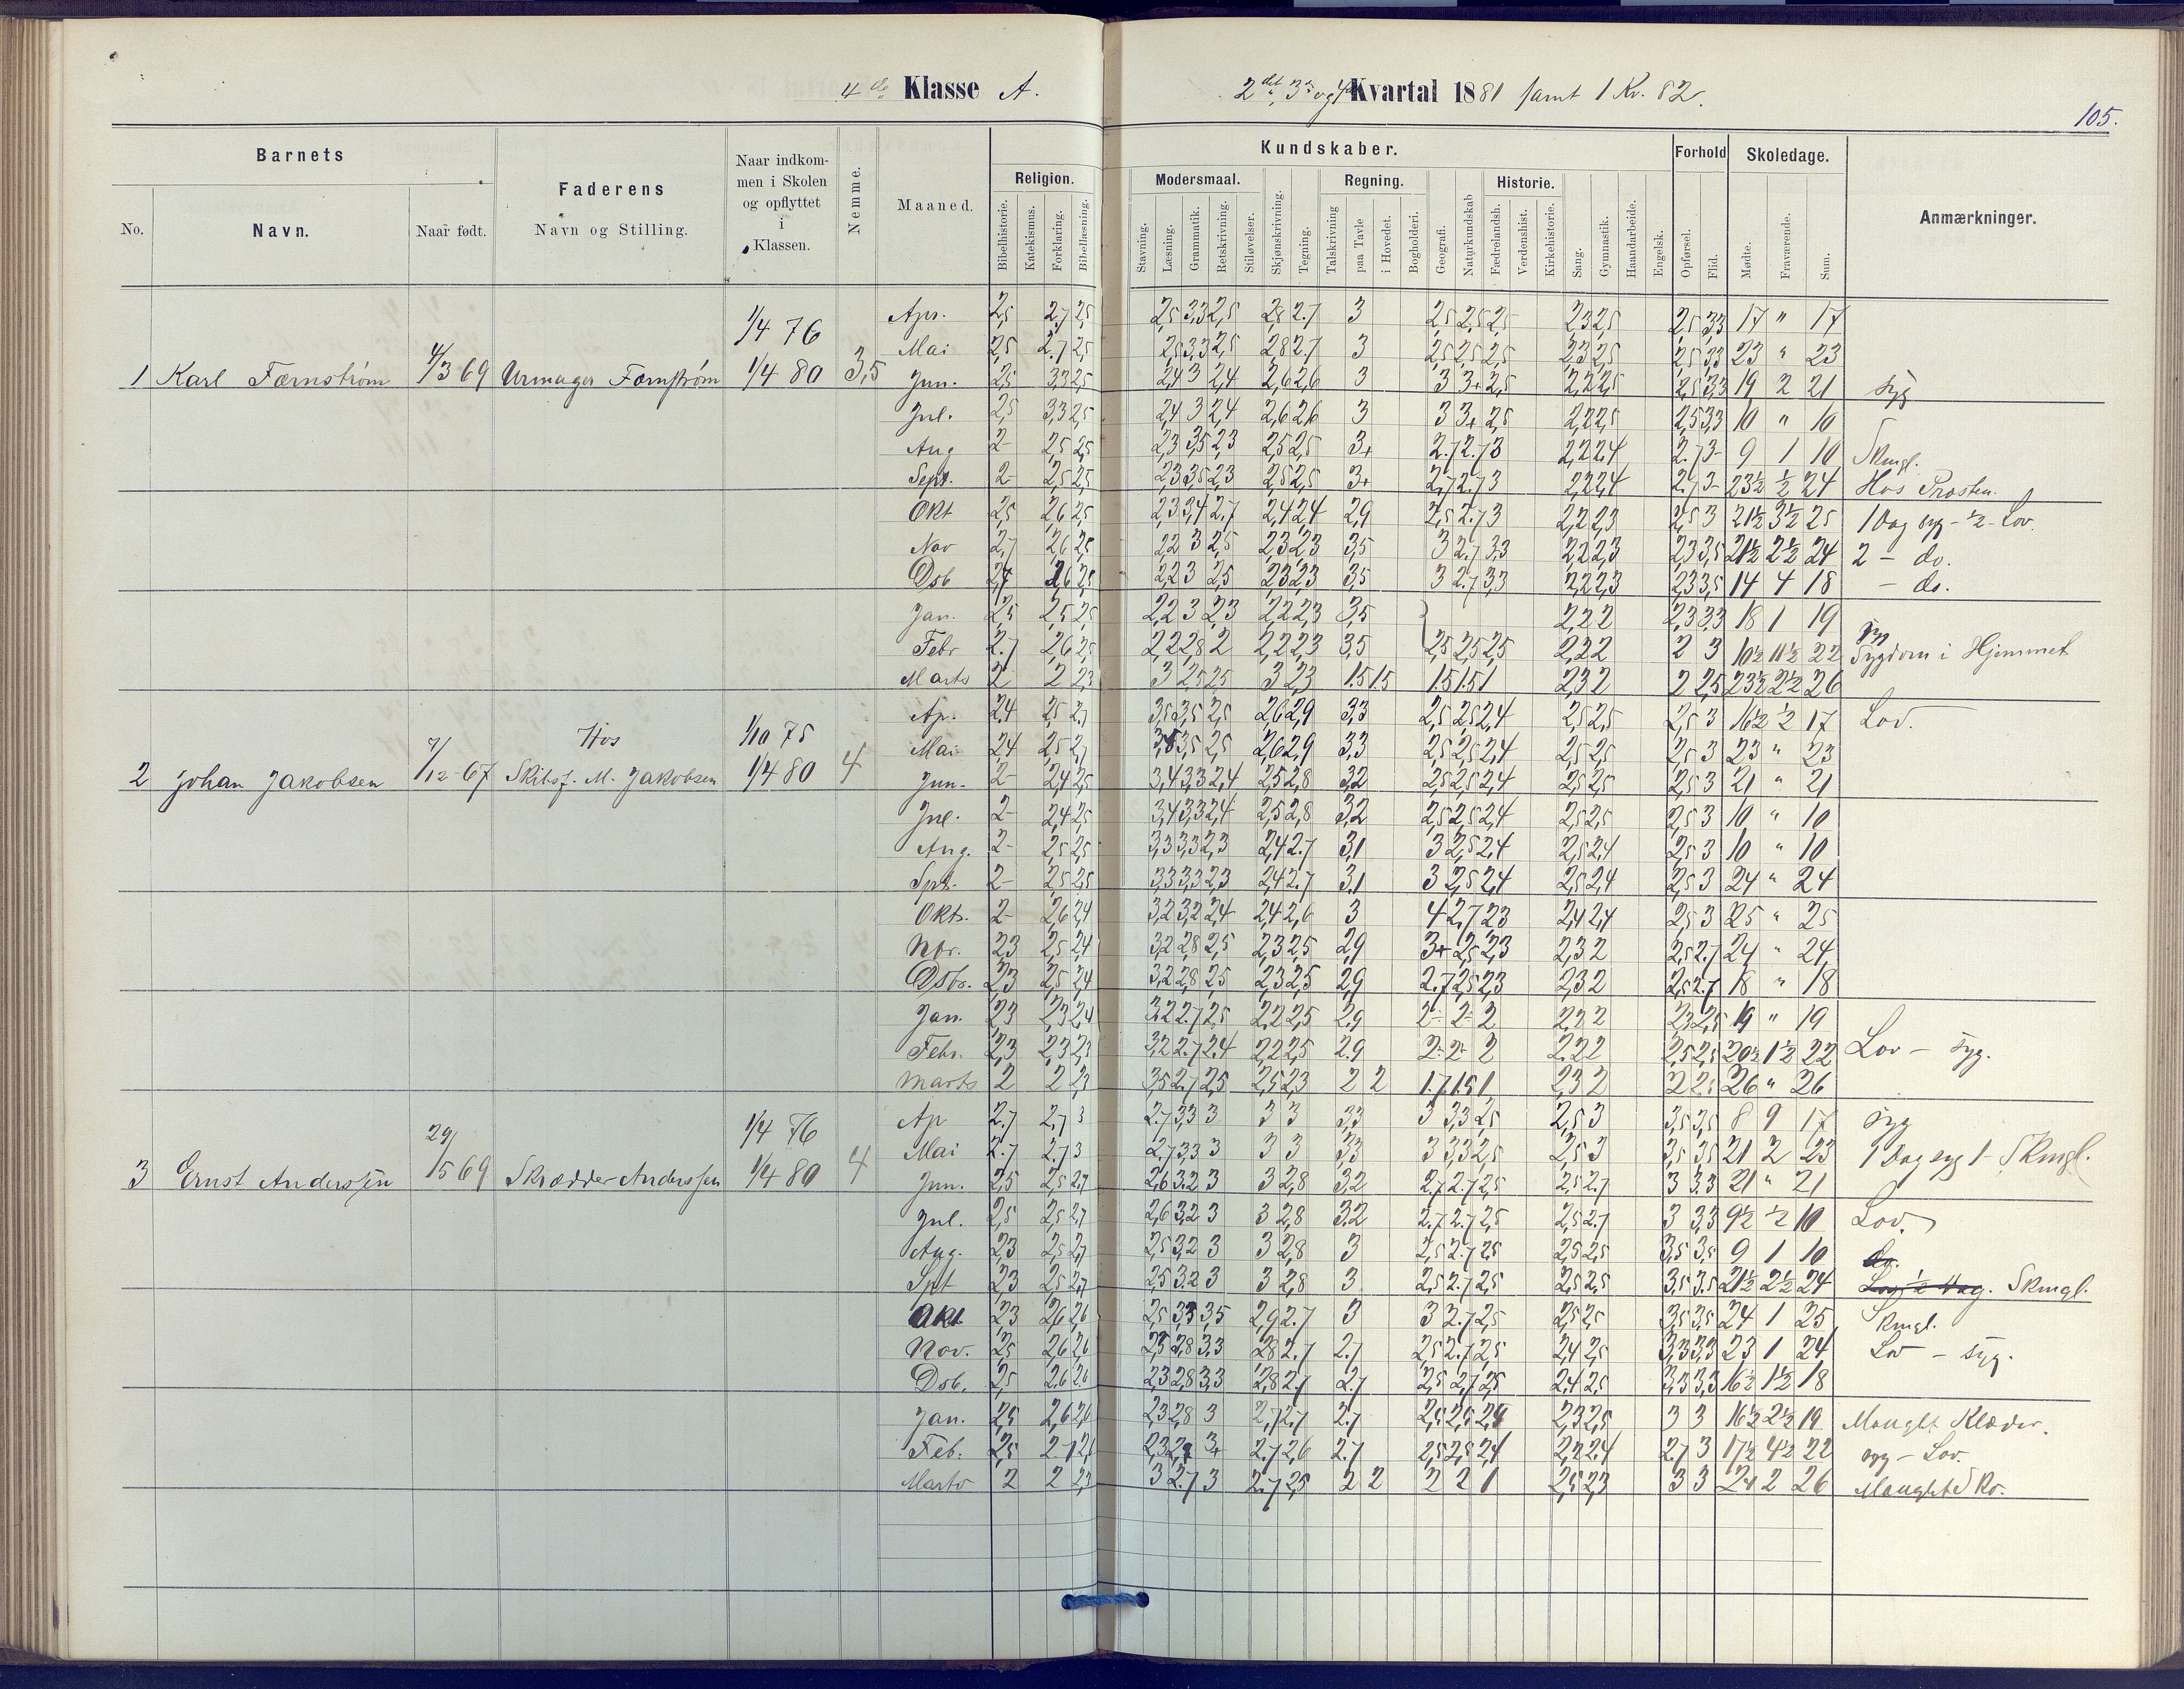 4de Klasse A.
2det, 3die og 4de Kvartal 1881 samt 1 Kv. 82.
105.
Barnets
No.
Navn.
Naar født.
Faderens
Navn og Stilling.
Naar indkom-
men i Skolen
og opflyttet
i
Klassen.
Nemme.
Maaned.
Kundskaber.
Religion.
Bibelhistorie.
Katekismus.
Forklaring.
Bibellæsning.
Modersmaal.
Stavning.
Læsning.
Grammatik.
Retskrivning.
Stiløvelser.
Skjønskrivning.
Tegning.
Regning.
Talskrivning
paa Tavle
i Hovedet.
Bogholderi.
Geografi.
Naturkundskab
Historie.
Fædrelandsh.
Verdenshist.
Kirkehistorie.
Sang.
Gymnastik.
Haandarbeide.
Engelsk.
Forhold
Opførsel.
Flid.
Skoledage.
Møde.
Fraværende.
Sum.
Anmærkninger.
1 Karl Færnstrøm 4/3 69 Urmager Færnstrøm 1/4 76 1/4 80 3,5
Apr. 2,5 2,7 2,5 2,5 3,3 2,5 2,8 2.7 3 2,5 2,5 2,5 2,3 2,5 2,5 3,3 17 " 17
Mai 2,5 2.7 2,5 2,5 3,3 2,5 2,8 2.7 3 2,5 2,5 2,5 2,3 2,5 2,5 3,3 23 " 23
Jun. 2,5 3,3 2,5 2,4 3 2,4 2,6 2,6 3 3 3+ 2,5 2,2 2,5 2,5 3,3 19 2 21 syg
Jul. 2,5 3,3 2,5 2,4 3 2,4 2,6 2,6 3 3 3+ 2,5 2,2 2,5 2,5 3,3 10 " 10
Aug 2- 2,5 2,5 2,3 3,5 2,3 2,5 2,5 3+ 2.7 2.7 3 2,2 2,4 2.7 3- 9 1 10 Skmgl.
Sept. 2- 2,5 2,5 2,3 3,5 2,3 2,5 2,5 3+ 2,7 2.7 3 2,2 2,4 2.7 3- 23½ ½ 24 Hos Prosten.
Okt 2,5 2,6 2,5 2,3 3,4 2,7 2,4 2,4 2,9 2,5 2.7 3 2,2 2,3 2,5 3 21½ 3½ 25 1 Dag syg - ½ - Lov.
Nov 2,7 2,6 2,5 2,2 3 2,5 2,3 2,3 3,5 3 2.7 3,3 2,2 2,3 2,3 3,5 21½ 2½ 24 2 - do.
Dsb 2,7 2,6 2,5 2,2 3 2,5 2,3 2,3 3,5 3 2.7 3,3 2,2 2,3 2,3 3,5 14 4 18 - do.
Jan. 2,5 2,5 2,5 2,2 3 2,3 2,2 2,3 3,5 2,2 2 2,3 3,3 18 1 19 syg
Febr 2.7 2,6 2,5 2,2 2,8 2 2,2 2,3 3,5 2,5 2,5 2,5 2,2 2 2 3 10½ 11½ 22 Sygdom i Hjemmet
Marts 2 2 2,3 3 2,5 2,5 3 2,3 1.5 1.5 1.5 1.5 1 2,3 2 2 2,5 23½ 2½ 26
2 Johan Jakobsen 7/12 67 Hos Skibsf. M. Jakobsen 1/10 75 1/4 80 4
Ap. 2,4 2,5 2,7 3,5 3,5 2,5 2,6 2,9 3,3 2,5 2,5 2,4 2,5 2,5 2,5 3 16½ ½ 17 Lov.
Mai 2,4 2,5 2,7 3,5 3,5 2,5 2,6 2,9 3,3 2,5 2,5 2,4 2,5 2,5 2,5 3 23 " 23
Jun. 2- 2,4 2,5 3,4 3,3 2,4 2,5 2,8 3,2 2,5 2,5 2,4 2,5 2,5 2,5 3 21 " 21
Jul. 2- 2,4 2,5 3,4 3,3 2,4 2,5 2,8 3,2 2,5 2,5 2,4 2,5 2,5 2,5 3 10 " 10
Aug. 2- 2,5 2,5 3,3 3,3 2,3 2,4 2.7 3,1 3 2,5 2,4 2,5 2,4 2,5 3 10 " 10
Spt. 2- 2,5 2,5 3,3 3,3 2,3 2,4 2.7 3,1 3 2,5 2,4 2,5 2,4 2,5 3 24 " 24
Okt. 2- 2,6 2,4 3,2 3,2 2,4 2,4 2,6 3 4 2,7 2,3 2,4 2,4 2,5 3 25 " 25
Nbr. 2,3 2,5 2,4 3,2 2,8 2,5 2,3 2,5 2,9 3+ 2,5 2,3 2,3 2 2,5 2.7 24 " 24
Dsbr. 2,3 2,5 2,4 3,2 2,8 2,5 2,3 2,5 2,9 2.7 2,5 2,3 2,3 2 2,5 2.7 18 " 18
Jan. 2,3 2,3 2,4 3,2 2.7 2,5 2,2 2,5 2,9 2- 2- 2 2,2 2 2,3 2,5 19 " 19
Febr. 2,3 2,3 2,3 3,2 2.7 2.4 2,2 2,5 2.9 2- 2- 2 2.2 2 2,5 2,5 20½ 1½ 22 Lov - syg.
Marts 2 2 2,3 3,5 2.7 2,5 2,5 2,3 2 2 1.7 1.5 1 2,3 2 2 2,5 26 " 26
3 Ernst Anderssen 29/5 69 Skrædder Anderssen 1/4 76 1/4 80 4
Ap 2.7 2,7 3 2.7 3,3 3 3 3 3,3 3 3,3 2,5 2,5 3 3,5 3,5 8 9 17 syg
Mai 2.7 2.7 3 2.7 3,3 3 3 3 3,3 3 3,3 2,5 2,5 3 3,5 3,5 21 2 23 1 Dag syg 1 - Skmgl.
Jun. 2,5 2,5 2.7 2,6 3,2 3 3 2,8 3,2 2.7 2.7 2,5 2,5 2.7 3 3,3 21 " 21
Jul. 2,5 2,5 2,7 2,6 3,2 3 3 2,8 3,2 2.7 2.7 2,5 2,5 2.7 3 3,3 9½ ½ 10 Lov.
Aug. 2,3 2,5 2,7 2,5 3,2 3 3 2,8 3 2,5 2.7 2,5 2,5 2,5 3,5 3,5 9 1 10 do.
Spt 2,3 2,5 2,7 2,5 3.2 3 3 2,8 3 2,5 2.7 2,5 2,5 2,5 3,5 3.5 21½ 2½ 24 Lov ½ Dag. Skmgl.
Okt 2,3 2,6 2,6 2,5 3,3 3,5 2,9 2.7 3 3 2.7 2,5 2,5 2,5 3,5 3,5 24 1 25 Skmgl.
Nov. 2,5 2,6 2,6 2,3 2,8 3,3 2,8 2.7 2.7 2,5 2.7 2,5 2,4 2,5 3,3 3,3 23 1 24 Lov - syg.
Dsb. 2,5 2,6 2,6 2,3 2,8 3,3 2,8 2.7 2.7 2,5 2,7 2,5 2,4 2,5 3,3 3,3 16½ 1½ 18
Jan. 2,5 2,6 2,6 2,3 2,8 3 2,7 2,7 2.7 2,5 2,5 2,5 2,3 2,5 3 3 16½ 2½ 19 Manglt Klæder.
Feb. 2,5 2.7 2,6 2,3 2,9 3+ 2.7 2,6 2.7 2,5 2,5 2,4 2,2 2.4 2.7 3 17½ 4½ 22 syg - Lov.
Marts 2 2 2,3 3 2.7 3 2.7 2,5 2 2 2 2 1 2,5 2,3 3 3 24 2 26 Manglted Sko.